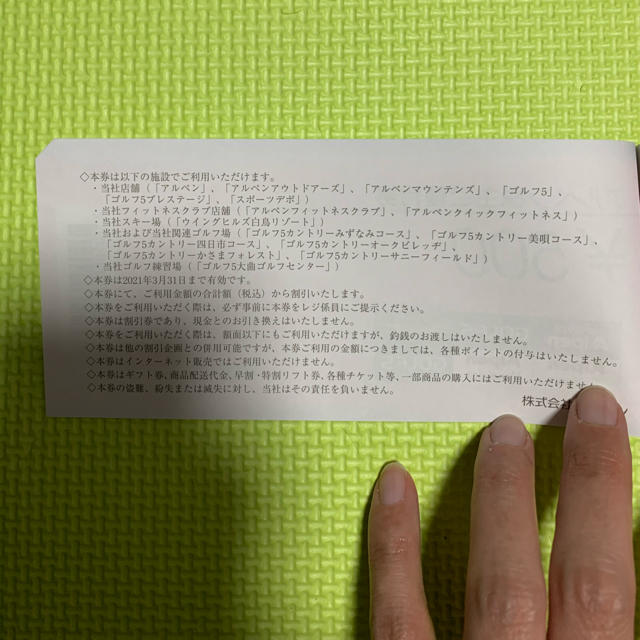 ◇本券は以下の施設でご利用いただけます。
・当社店舗（「アルペン」、「アルペンアウトドアーズ」、「アルペンマウンテンズ」、「ゴルフ5」、
「ゴルフ5プレステージ」、「スポーツデポ」）
・当社フィットネスクラブ店舗（「アルペンフィットネスクラブ」、「アルペンクイックフィットネス」）
・当社スキー場（「ウイングヒルズ白鳥リゾート」）
・当社および当社関連ゴルフ場（「ゴルフ5カントリーみずなみコース」、「ゴルフ5カントリー美唄コース」、
「ゴルフ5カントリー四日市コース」、「ゴルフ5カントリーオークビレッヂ」、
「ゴルフ5カントリーかさまフォレスト」、「ゴルフ5カントリーサニーフィールド」）
・当社ゴルフ練習場（「ゴルフ5大曲ゴルフセンター」）
◇本券は2021年3月31日まで有効です。
◇本券にて、ご利用金額の合計額（税込）から割引いたします。
◇本券をご利用いただく際は、必ず事前に本券をレジ係員にご提示ください。
◇本券は割引券であり、現金とのお引き換えはいたしません。
◇本券をご利用いただく際は、額面以下にもご利用いただけますが、釣銭のお渡しはいたしません。
◇本券は他の割引企画との併用可能ですが、本券ご利用の金額につきましては、各種ポイントの付与はいたしません。
◇本券はインターネット販売ではご利用いただけません。
◇本券はギフト券、商品配送代金、早割・特割リフト券、各種チケット等、一部商品の購入にはご利用いただけません。
◇本券の盗難、紛失または滅失に対し、当社はその責任を負いません。
株式会社